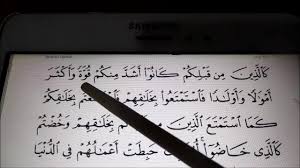 كَالَّذِينَ مِن قَبْلِكُمْ كَانُوا أَشَدَّ مِنكُمْ قُوَّةً وَأَكْثَرَ
أَمْوَالًا وَأَوْلَادًا فَاسْتَمْتَعُوا بِخَلَاقِهِمْ فَاسْتَمْتَعْتُم بِخَلَاقِكُمْ
كَمَا اسْتَمْتَعَ الَّذِينَ مِن قَبْلِكُم بِخَلَاقِهِمْ وَخُضْتُمْ
كَالَّذِي خَاضُوا أُولَٰئِكَ حَبِطَتْ أَعْمَالُهُمْ فِي الدُّنْيَا